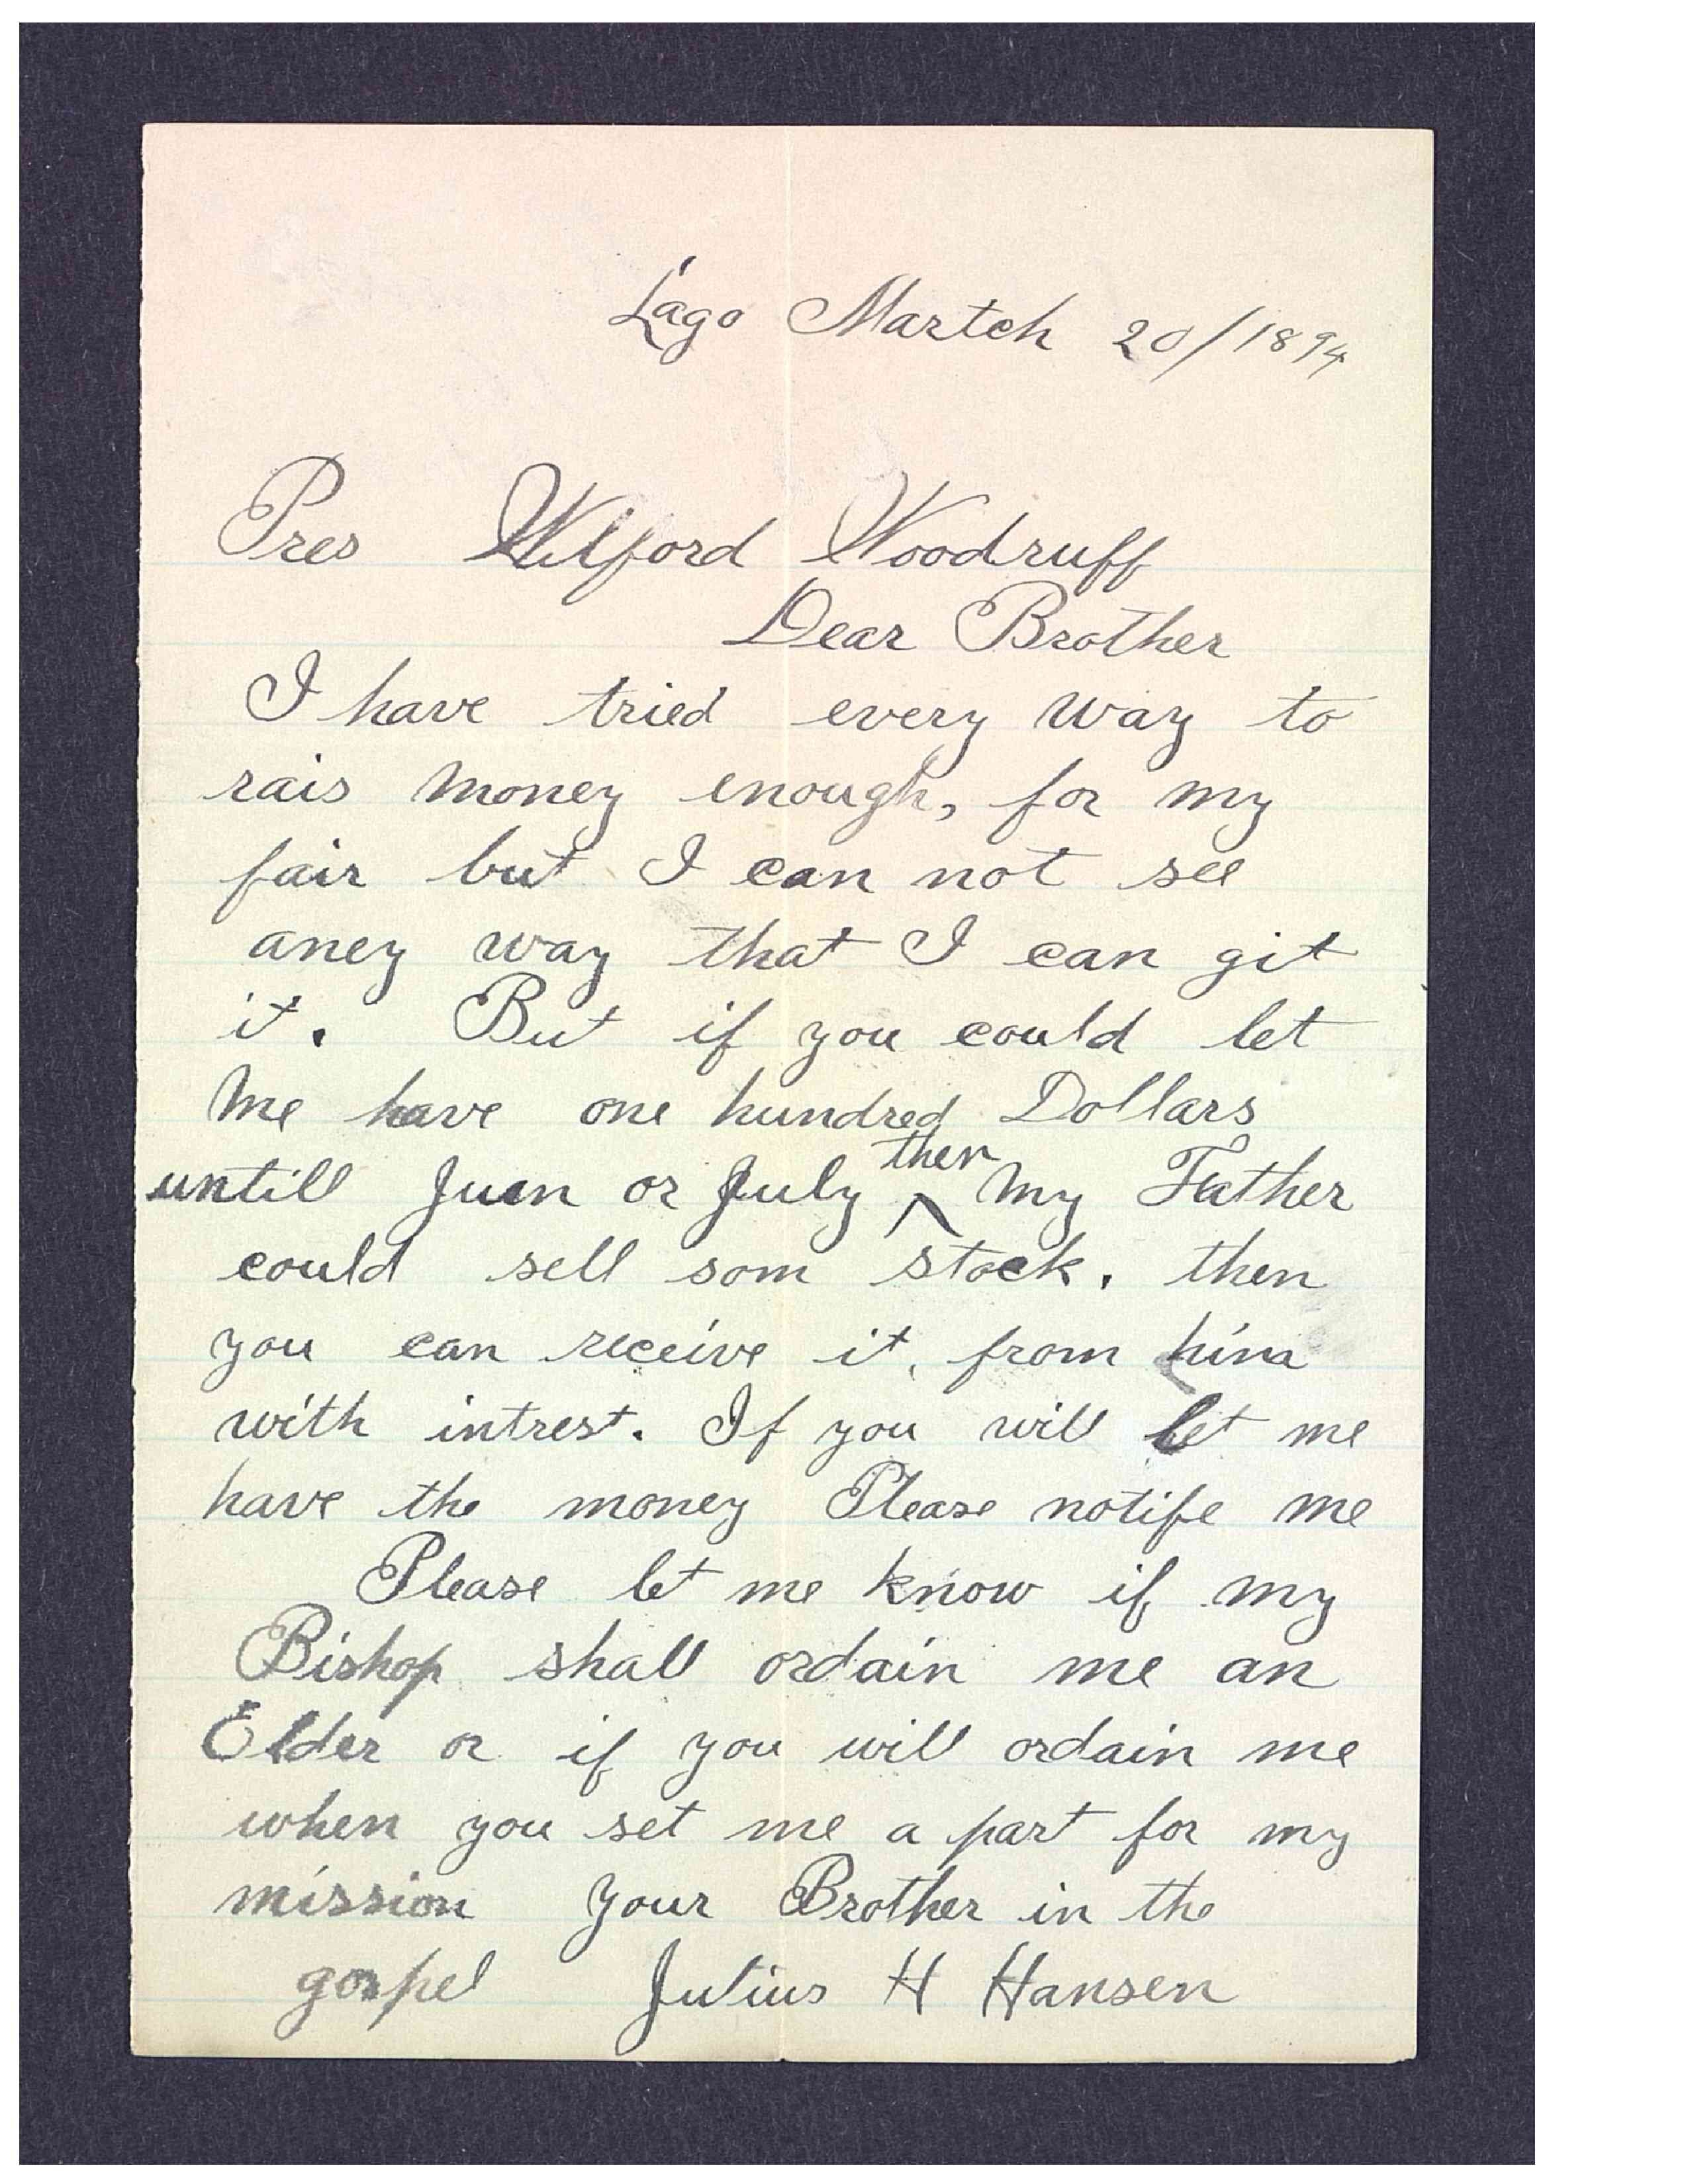 Lago Martch 20/1894
Pres Wilford Woodruff
Dear Brother
I have tried every way to
rais money enough, for my
fair but I can not see
aney way that I can git
it. But if you could let
me have one hundred Dollars
untill Juen or July ^ then my Father
could sell som stock. then
you can receive it, from him
with intrest. If you will let me
have the money Please notife me
Please let me know if my
Bishop shall ordain me an
Elder or if you will ordain me
when you set me a part for my
mission Your Brother in the
gospel Julius H Hansen